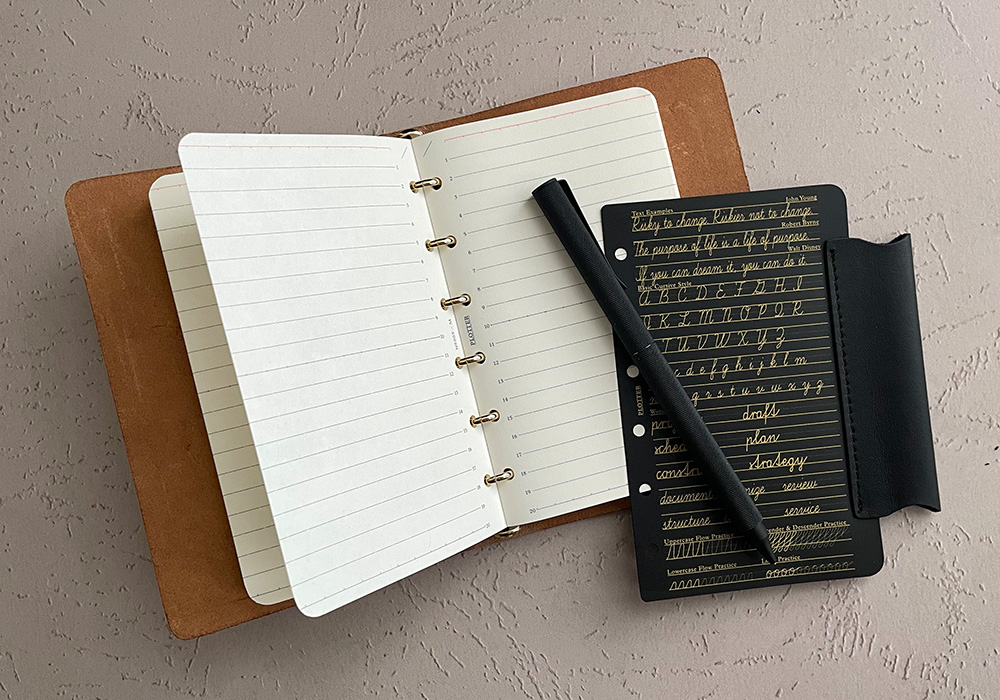 PLOTTER
2
4
10
11
12
13
14
15
16
17
18
19
20
Text Examples
John Young
Risky to change. Riskier not to change.
Robert Byrne
The purpose of life is a life of purpose.
Walt Disney
If you can dream it, you can do it.
Basic Cursive Style
A B C D E F G H I
K L M N O P Q R
T U V W X Y Z
c d e f g h i j k l m
q r s t u v w x y z
PLOTTER
draft
plan
strategy
document review
structure service
Uppercase Flow Practice
& Descender Practice
Lowercase Flow Practice
Practice